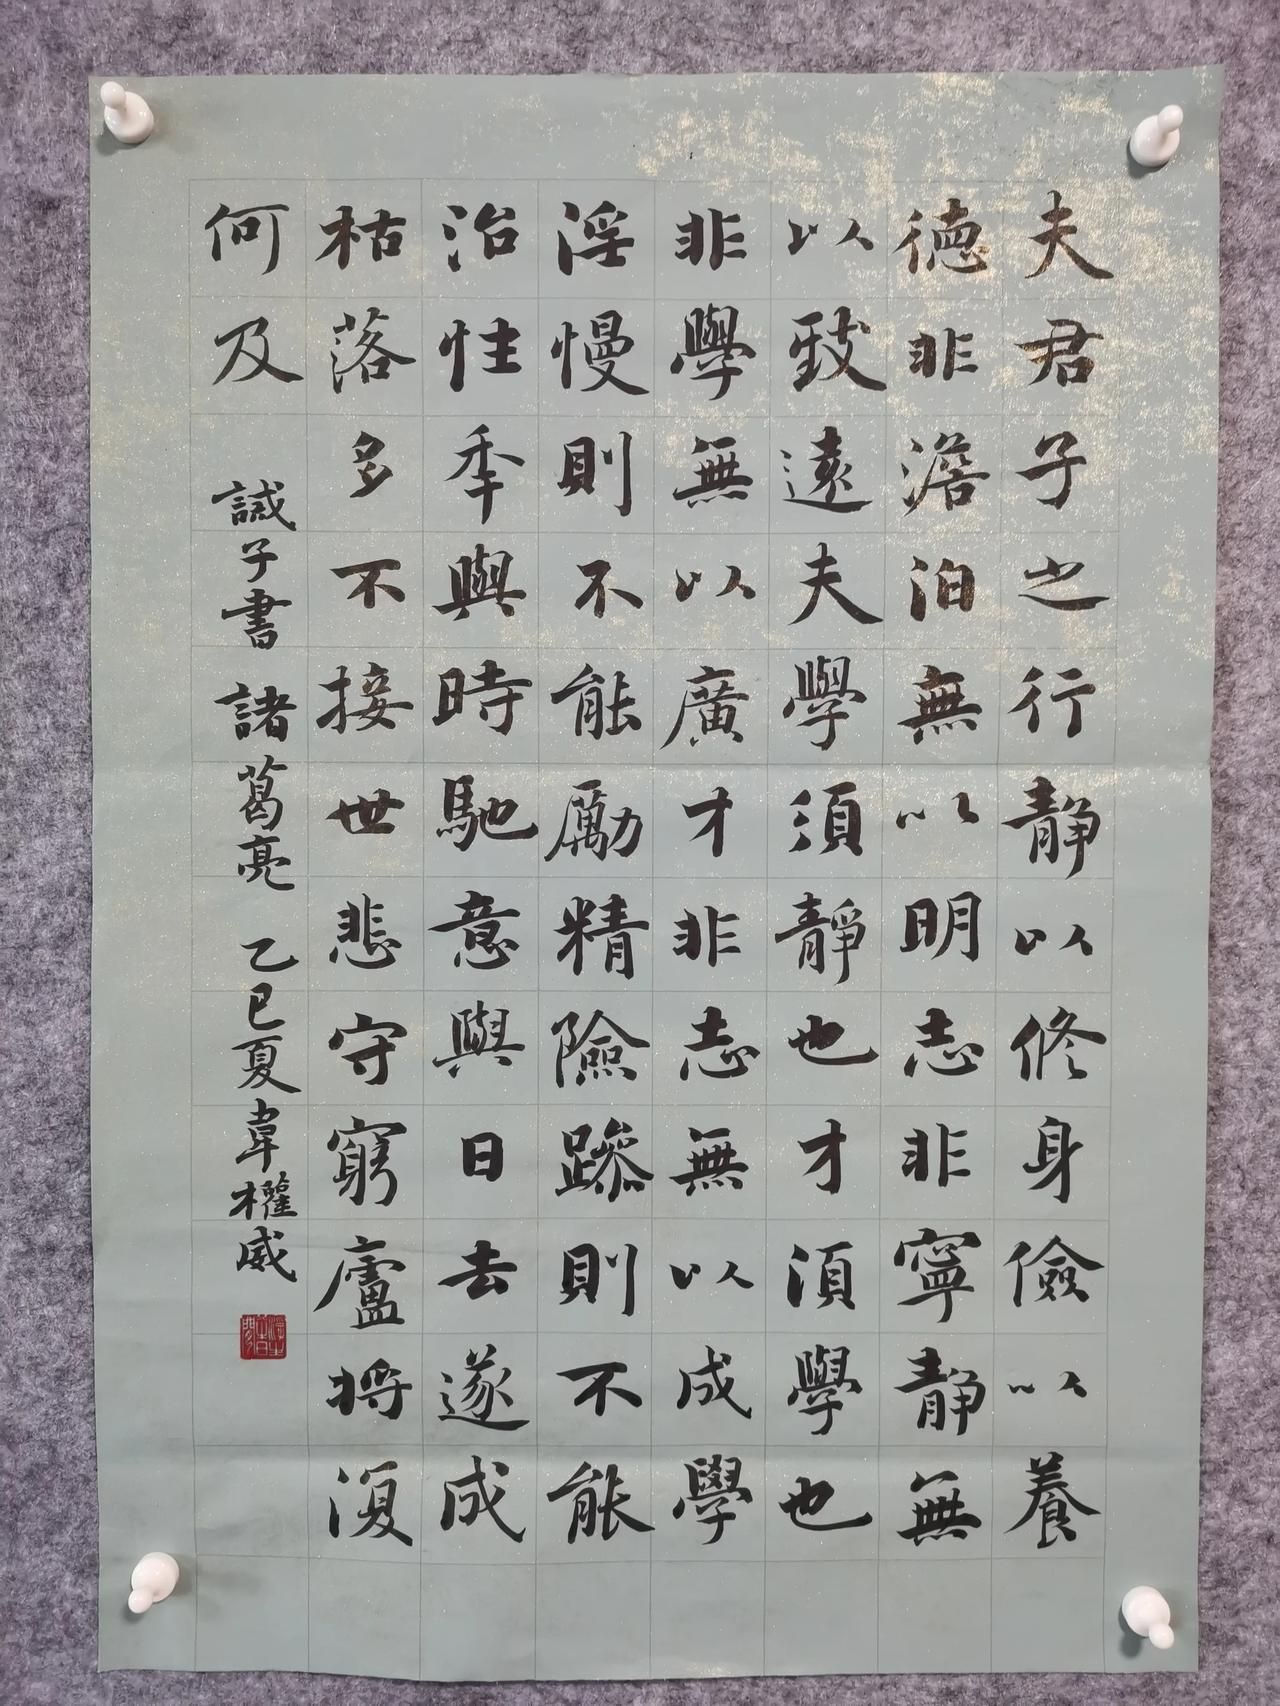 夫君子之行静以修身儉以養
德非澹泊無以明志非寧静無
以致遠夫學須靜也才須學也
非學無以廣才非志無以成學
淫慢不則不能勵精險躁則不能
治性年與時馳意與日去遂成
枯落多不接世悲守窮廬將復
何及
誡子書 諸葛亮 乙巳夏韋權威